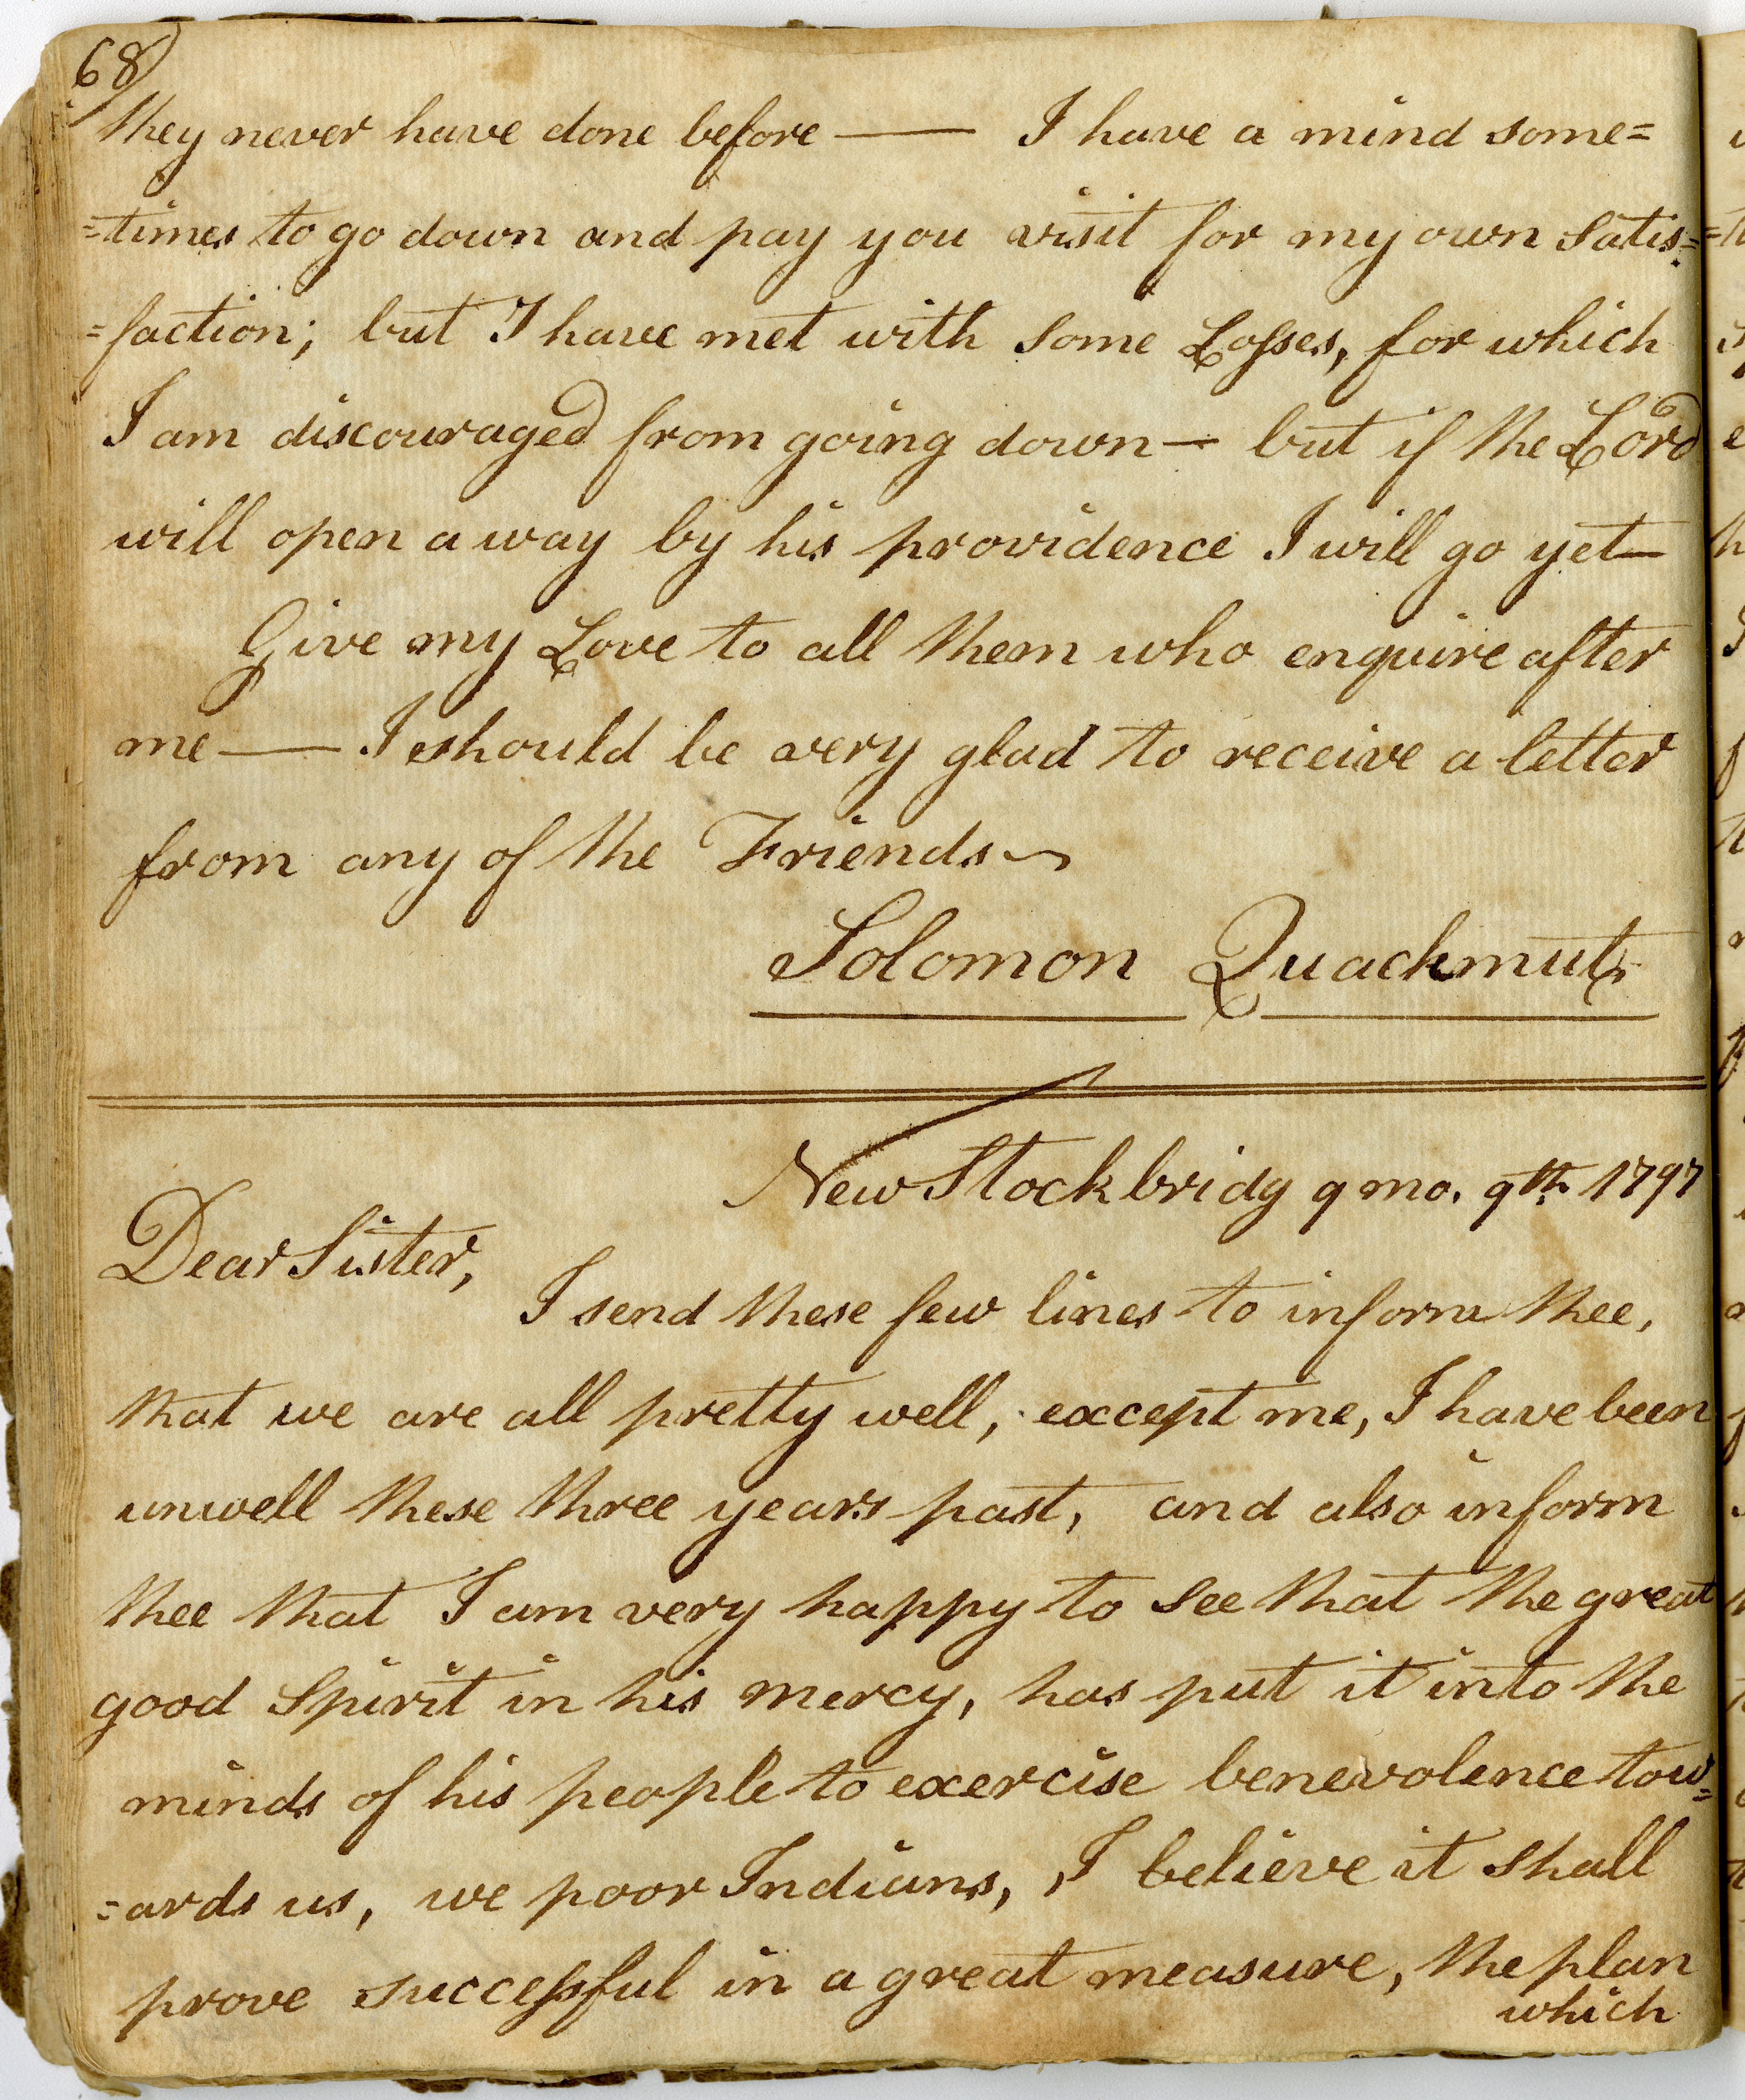 68
they never have done before — I have a mind some=
=times to go down and pay you visit for my own Satis=
=faction; but I have met with some Losses, for which
I am discouraged from going down — but if the Lord
will open a way by his providence I will go yet —
Give my Love to all them who enquire after
me — I should be very glad to receive a letter
from any of the Friends ~
Solomon Quachmut
New Stockbridg 9 mo. 9th. 1797
Dear Sister,
I send these few lines to inform thee,
that we are all pretty well, except me, I have been
unwell these three years past, and also inform
thee that I am very happy to see that the great
good Spirit in his mercy, has put it into the
minds of his people to exercise benevolence tow=
=ards us, we poor Indians, I believe it shall
prove successful in a great measure, the plan
which